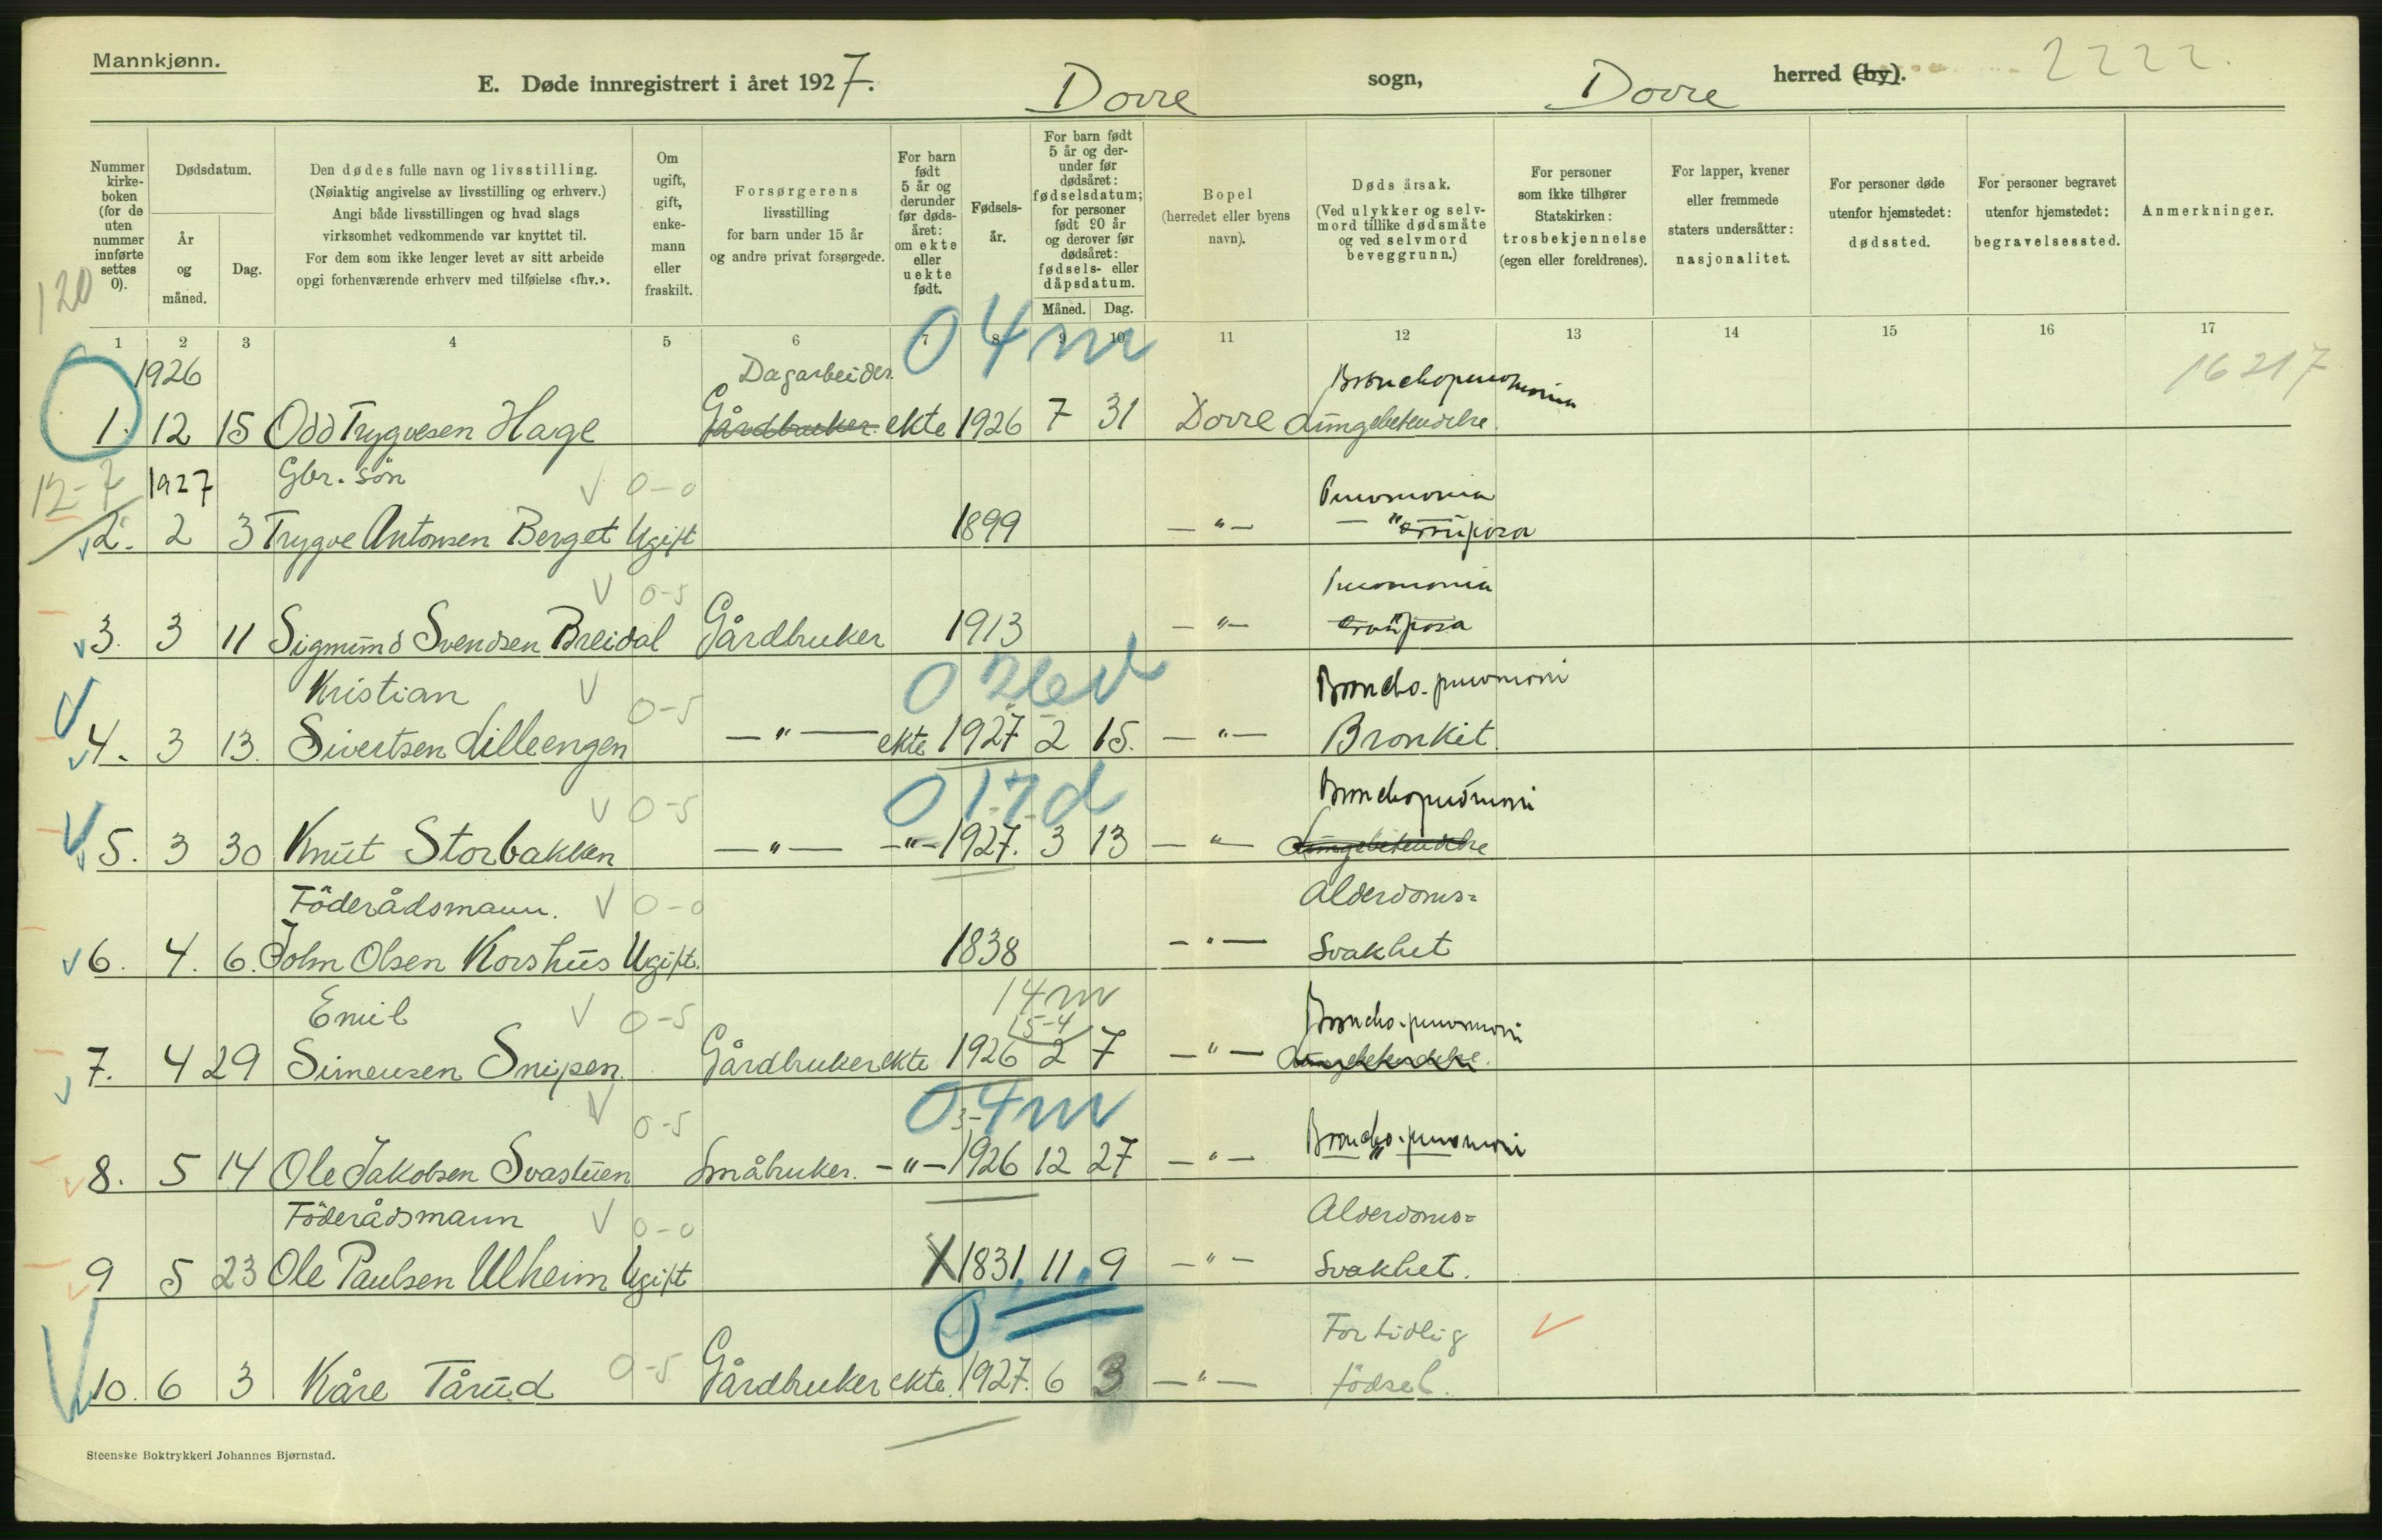 Mannkjønn.
E. Døde innregistrert i året 1927. Dovre sogn, Dovre herred (by). 2222.
Nummer kirke-boken (for de uten nummer innførte settes 0).
Dødsdatum.
År og måned.
Dag.
Den dødes fulle navn og livsstilling.
(Nøiaktig angivelse av livsstilling og erhverv.)
Angi både livsstillingen og hvad slags
virksomhet vedkommende var knyttet til.
For dem som ikke lenger levet av sitt arbeide
opgi forhenværende erhverv med tilføielse «fhv.».
Om ugift, gift, enke-mann eller fraskilt.
Forsørgerens
livsstilling
for barn under 15 år
og andre privat forsørgede.
For barn født 5 år og derunder før døds-året: om ekte eller uekte født.
Fødsels-år.
For barn født 5 år og der-under før dødsåret: fødselsdatum; for personer født 90 år og derover før dødsåret: fødsels- eller dåpsdatum.
Måned. Dag.
Bopel
(herredet eller byens
navn).
Døds årsak.
(Ved ulykker og selv-
mord tillike dødsmåte
og ved selvmord
beveggrunn.)
For personer
som ikke tilhører
Statskirken:
trosbekjennelse
(egen eller foreldrenes).
For lapper, kvener
eller fremmede
staters undersåtter:
nasjonalitet.
For personer døde
utenfor hjemstedet:
dødssted.
For personer begravet
utenfor hjemstedet:
begravelsessted.
Anmerkninger.
120
1 2 3 4 5 6 7 8 9 10 11 12 13 14 15 16 17
04m
16217
1926 Dagarbeider. Bronchopneumonia
1. 12 15 Odd Trygvesen Hage Gårdbruker. ekte 1926 7 31 Dovre Lungebetendelse.
12-7 1927 Gbr. sön 0-0 Pneomonia
2. 2 3 Trygve Antonsen Berget Ugift 1899 —"— —"— crouposa
0-5 Pneomonia
3. 3 11 Sigmund Svendsen Breidal Gårdbruker 1913 —"— crouposa
Kristian 0-5 Broncho-pneomoni
4. 3 13. Sivertsen Lilleengen —"— ekte 1927 2 15. —"— Bronkit.
0-5 0 17 d Bronchopneumoni
5. 3 30 Knut Storbakken —"— —"— 1927. 3 13 —"— Lungebetendelse
Föderådsmann. 0-0 Alderdoms=
6. 4. 6. John Olsen Korshus Ugift. 1838 —"— Svakhet
Emil 0-5 14m 15-4 Broncho-pneomoni
7. 4 29 Simensen Snipen. Gårdbruker ekte 1926 2 7 —"— Lungebetendelse.
0-5 04m Broncho-pneomoni
8. 5 14 Ole Jakobsen Svastuen Småbruker. —"— 1926 12 27 —"— "
Föderådsmann 0-0 Alderdoms=
9 5 23 Ole Paulsen Ulheim Ugift X 1831. 11. 9 —"— Svakhet.
0 For tidlig
10. 6 3 Kåre Tårud 0-5 Gårdbruker ekte. 1927. 6 3 —"— födsel.
Steenske Boktrykkeri Johannes Bjørnstad.